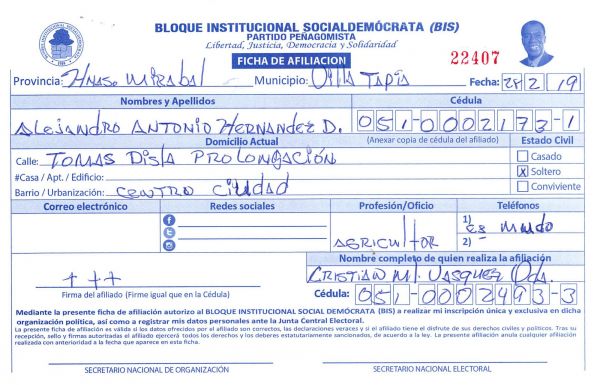 BLOQUE INSTITUCIONAL SOCIALDEMÓCRATA (BIS)
PARTIDO PEÑAGOMISTA
Libertad, Justicia, Democracia y Solidaridad
FICHA DE AFILIACION
22407
Provincia: Hnas. Mirabal Municipio: Villa Tapia Fecha: 28 2 / 19
Nombres y Apellidos Cédula
Alejandro Antonio Hernandez D. 051-0002173-1
Domicilio Actual (Anexar copia de cédula del afiliado) Estado Civil
Calle: Tomas Disla Prolongación
Casado
#Casa / Apt. / Edificio:
X Soltero
Barrio / Urbanización: Centro Ciudad
Conviviente
Correo electrónico Redes sociales Profesión/Oficio Teléfonos
Agricultor
1) es mudo
2) -
Nombre completo de quien realiza la afiliación
+++
Cristian Ml. Vasquez
Firma del afiliado (Firme igual que en la Cédula)
Cédula: 051-0002493-3
Mediante la presente ficha de afiliación autorizo al BLOQUE INSTITUCIONAL SOCIAL DEMÓCRATA (BIS) a realizar mi inscripción única y exclusiva en dicha
organización política, así como a registrar mis datos personales ante la Junta Central Electoral.
La presente ficha de afiliación es válida si los datos ofrecidos por el afiliado son correctos, las declaraciones veraces y si el afiliado tiene el disfrute de sus derechos civiles y políticos. Tras su
recepción, sello y firmas autorizadas el afiliado ejercerá todos los derechos y los deberes estatutariamente sancionados, de acuerdo a la ley. La presente afiliación anula cualquier afiliación
realizada con anterioridad a la fecha que aparece en esta ficha.
SECRETARIO NACIONAL DE ORGANIZACIÓN SECRETARIO NACIONAL ELECTORAL